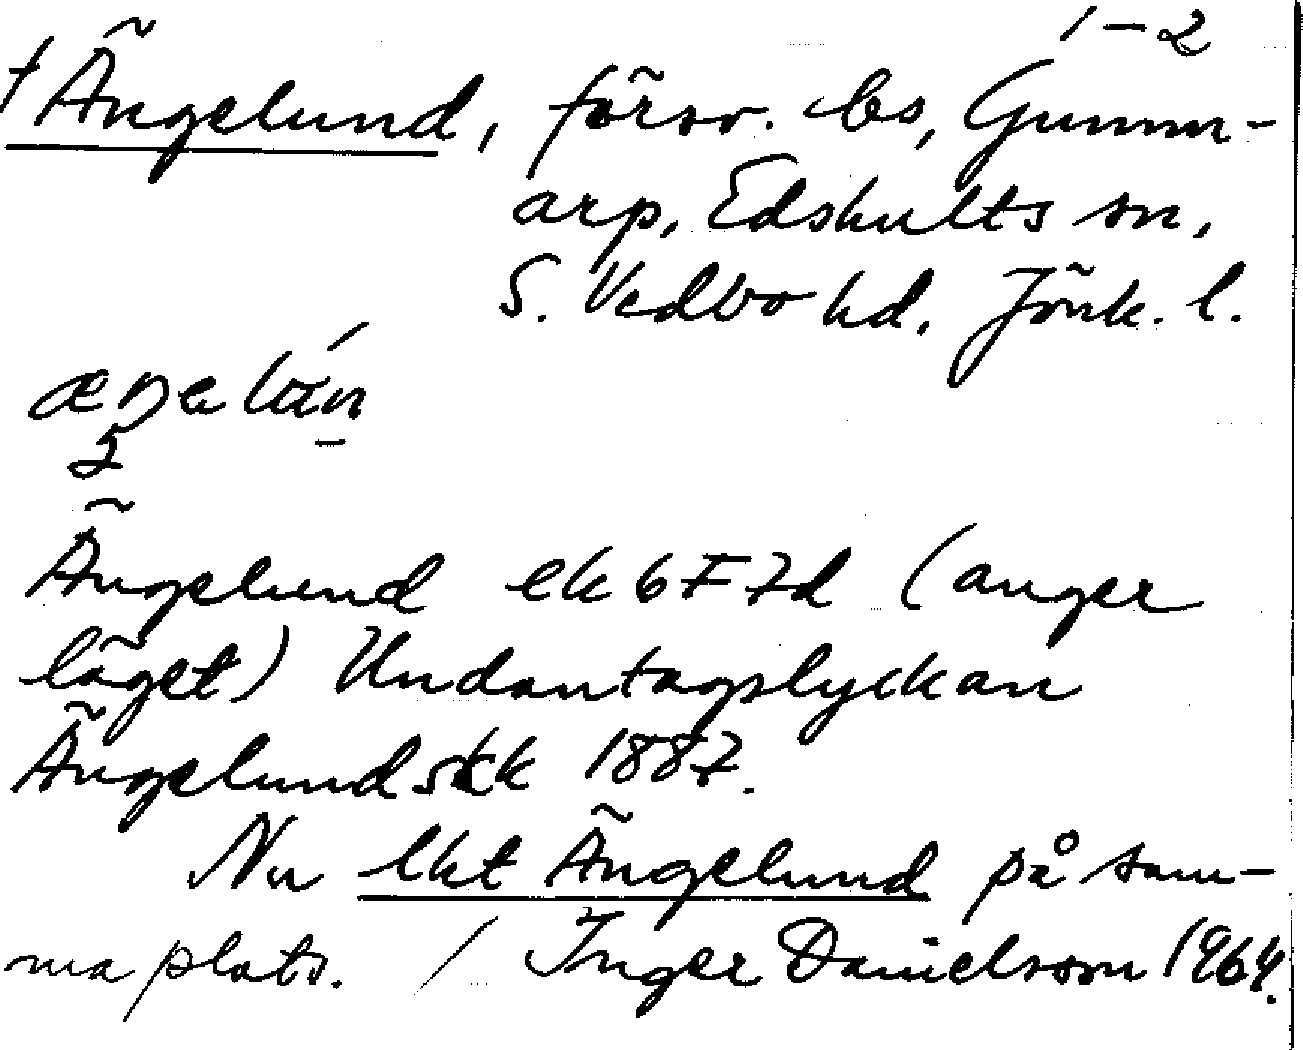 1–2
† Ängelund, försv. bs, Gumm-
arp, Edshults sn,
S. Vedbo hd, Jönk. l.
Ängelund ek 6F 7d (anger
läget) Undantagslyckan
Ängelund skk 1887.
Nu lht Ängelund på sam-
ma plats. / Inger Danielsson 1964.